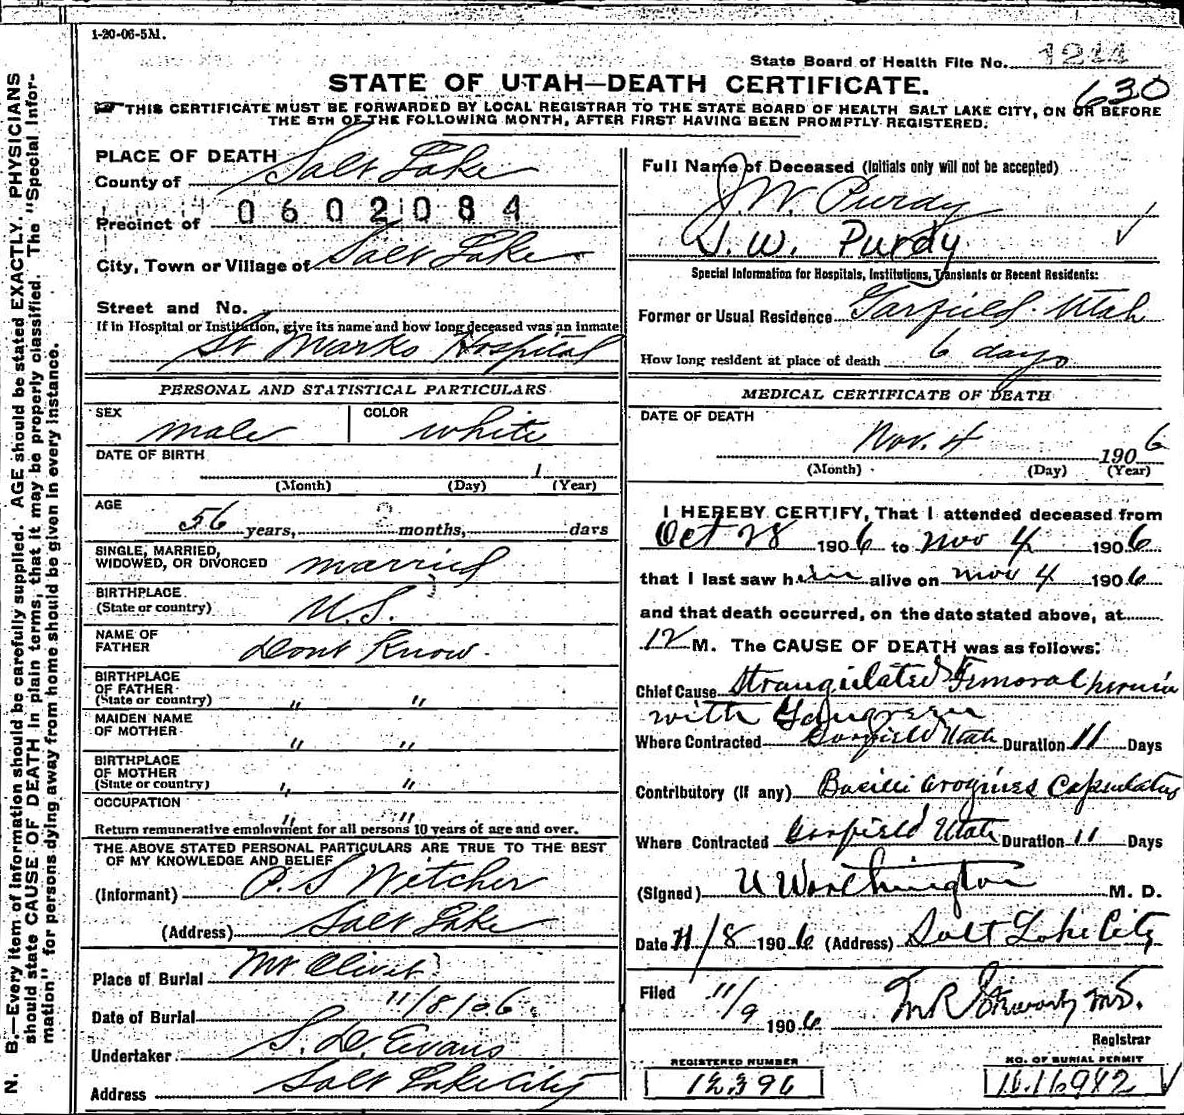 1-20-06-5M.
State Board of Health File No. 1244
STATE OF UTAH—DEATH CERTIFICATE.
630
THIS CERTIFICATE MUST BE FORWARDED BY LOCAL REGISTRAR TO THE STATE BOARD OF HEALTH SALT LAKE CITY, ON OR BEFORE
THE 5TH OF THE FOLLOWING MONTH, AFTER FIRST HAVING BEEN PROMPTLY REGISTERED.
N. B.—Every item of information should be carefully supplied. AGE should be stated EXACTLY. PHYSICIANS
should state CAUSE OF DEATH in plain terms, that it may be properly classified. The "Special Infor-
mation" for persons dying away from home should be given in every instance.
PLACE OF DEATH
County of Salt Lake
Precinct of 0602084
City, Town or Village of Salt Lake
Street and No.
If in Hospital or Institution, give its name and how long deceased was an inmate
St Marks Hospital
PERSONAL AND STATISTICAL PARTICULARS
SEX male COLOR white
DATE OF BIRTH 1
(Month) (Day) (Year)
AGE 56 years, months, days
SINGLE, MARRIED,
WIDOWED, OR DIVORCED married
BIRTHPLACE
(State or country) U.S.
NAME OF
FATHER Dont Know.
BIRTHPLACE
OF FATHER
(State or country) " "
MAIDEN NAME
OF MOTHER " "
BIRTHPLACE
OF MOTHER
(State or country) " "
OCCUPATION " "
Return remunerative employment for all persons 10 years of age and over.
THE ABOVE STATED PERSONAL PARTICULARS ARE TRUE TO THE BEST
OF MY KNOWLEDGE AND BELIEF
(Informant) P. S Witcher
(Address) Salt Lake
Place of Burial Mt Olivet
Date of Burial 11/8/06
Undertaker S. D. Evans
Address Salt Lake City
Full Name of Deceased (Initials only will not be accepted)
J W. Purdy
J. W. Purdy
Special Information for Hospitals, Institutions, Transients or Recent Residents:
Former or Usual Residence Garfield. Utah
How long resident at place of death 6 days
MEDICAL CERTIFICATE OF DEATH
DATE OF DEATH
Nov. 4 1906
(Month) (Day) (Year)
I HEREBY CERTIFY, That I attended deceased from
Oct 28 1906 to Nov 4 1906
that I last saw him alive on Nov 4 1906
and that death occurred, on the date stated above, at
12 M. The CAUSE OF DEATH was as follows:
Chief Cause Strangulated Femoral hernia
with Gangrene
Where Contracted Garfield Utah Duration 11 Days
Contributory (if any) Bacilli Capsulatus
Where Contracted Garfield Utah Duration 11 Days
(Signed) U Worthington M. D.
Date 11/8 1906 (Address) Salt Lake City
Filed 11/9 1906 M R Stewart MD.
Registrar
REGISTERED NUMBER
12396
NO. OF BURIAL PERMIT